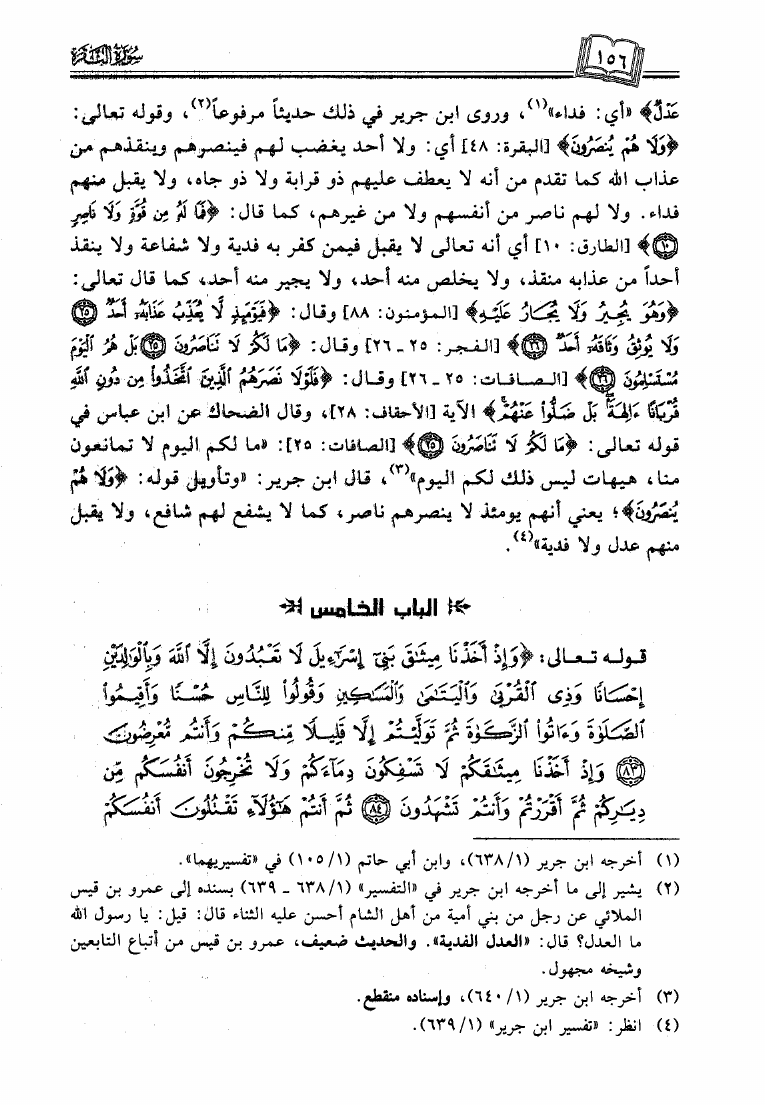 ١٥٦
سورة البقرة
عَدْلٌ﴾ «أي: فداء»(١)، وروى ابن جرير في ذلك حديثاً مرفوعاً(٢)، وقوله تعالى:
﴿وَلَا هُمْ يُنصَرُونَ﴾ [البقرة: ٤٨] أي: ولا أحد يغضب لهم فينصرهم وينقذهم من
عذاب الله كما تقدم من أنه لا يعطف عليهم ذو قرابة ولا ذو جاه، ولا يقبل منهم
فداء. ولا لهم ناصر من أنفسهم ولا من غيرهم، كما قال: ﴿فَمَا لَهُ مِن قُوَّةٍ وَلَا نَاصِرٍ
(١٠)﴾ [الطارق: ١٠] أي أنه تعالى لا يقبل فيمن كفر به فدية ولا شفاعة ولا ينقذ
أحداً من عذابه منقذ، ولا يخلص منه أحد، ولا يجير منه أحد، كما قال تعالى:
﴿وَهُوَ يُجِيرُ وَلَا يُجَارُ عَلَيْهِ﴾ [المؤمنون: ٨٨] وقال: ﴿فَيَوْمَئِذٍ لَّا يُعَذِّبُ عَذَابَهُۥ أَحَدٌ (٢٥)
وَلَا يُوثِقُ وَثَاقَهُۥ أَحَدٌ (٢٦)﴾ [الفجر: ٢٥ ـ ٢٦] وقال: ﴿مَا لَكُمْ لَا تَنَاصَرُونَ (٢٥) بَلْ هُمُ ٱلْيَوْمَ
مُسْتَسْلِمُونَ (٢٦)﴾ [الصافات: ٢٥ ـ ٢٦] وقال: ﴿فَلَوْلَا نَصَرَهُمُ ٱلَّذِينَ ٱتَّخَذُوا۟ مِن دُونِ ٱللَّهِ
قُرْبَانًا ءَالِهَةًۢ بَلْ ضَلُّوا۟ عَنْهُمْ﴾ الآية [الأحقاف: ٢٨]، وقال الضحاك عن ابن عباس في
قوله تعالى: ﴿مَا لَكُمْ لَا تَنَاصَرُونَ (٢٥)﴾ [الصافات: ٢٥]: «ما لكم اليوم لا تمانعون
منا، هيهات ليس ذلك لكم اليوم»(٣)، قال ابن جرير: «وتأويل قوله: ﴿وَلَا هُمْ
يُنصَرُونَ﴾؛ يعني أنهم يومئذ لا ينصرهم ناصر، كما لا يشفع لهم شافع، ولا يقبل
منهم عدل ولا فدية»(٤).
الباب الخامس
قوله تعالى: ﴿وَإِذْ أَخَذْنَا مِيثَٰقَ بَنِىٓ إِسْرَٰٓءِيلَ لَا تَعْبُدُونَ إِلَّا ٱللَّهَ وَبِٱلْوَٰلِدَيْنِ
إِحْسَانًا وَذِى ٱلْقُرْبَىٰ وَٱلْيَتَٰمَىٰ وَٱلْمَسَٰكِينِ وَقُولُوا۟ لِلنَّاسِ حُسْنًا وَأَقِيمُوا۟
ٱلصَّلَوٰةَ وَءَاتُوا۟ ٱلزَّكَوٰةَ ثُمَّ تَوَلَّيْتُمْ إِلَّا قَلِيلًا مِّنكُمْ وَأَنتُم مُّعْرِضُونَ
(٨٣) وَإِذْ أَخَذْنَا مِيثَٰقَكُمْ لَا تَسْفِكُونَ دِمَآءَكُمْ وَلَا تُخْرِجُونَ أَنفُسَكُم مِّن
دِيَٰرِكُمْ ثُمَّ أَقْرَرْتُمْ وَأَنتُمْ تَشْهَدُونَ (٨٤) ثُمَّ أَنتُمْ هَٰٓؤُلَآءِ تَقْتُلُونَ أَنفُسَكُمْ
(١) أخرجه ابن جرير (١/ ٦٣٨)، وابن أبي حاتم (١/ ١٠٥) في «تفسيريهما».
(٢) يشير إلى ما أخرجه ابن جرير في «التفسير» (١/ ٦٣٨ ـ ٦٣٩) بسنده إلى عمرو بن قيس
الملائي عن رجل من بني أمية من أهل الشام أحسن عليه الثناء قال: قيل: يا رسول الله
ما العدل؟ قال: «العدل الفدية». والحديث ضعيف، عمرو بن قيس من أتباع التابعين
وشيخه مجهول.
(٣) أخرجه ابن جرير (١/ ٦٤٠)، وإسناده منقطع.
(٤) انظر: «تفسير ابن جرير» (١/ ٦٣٩).